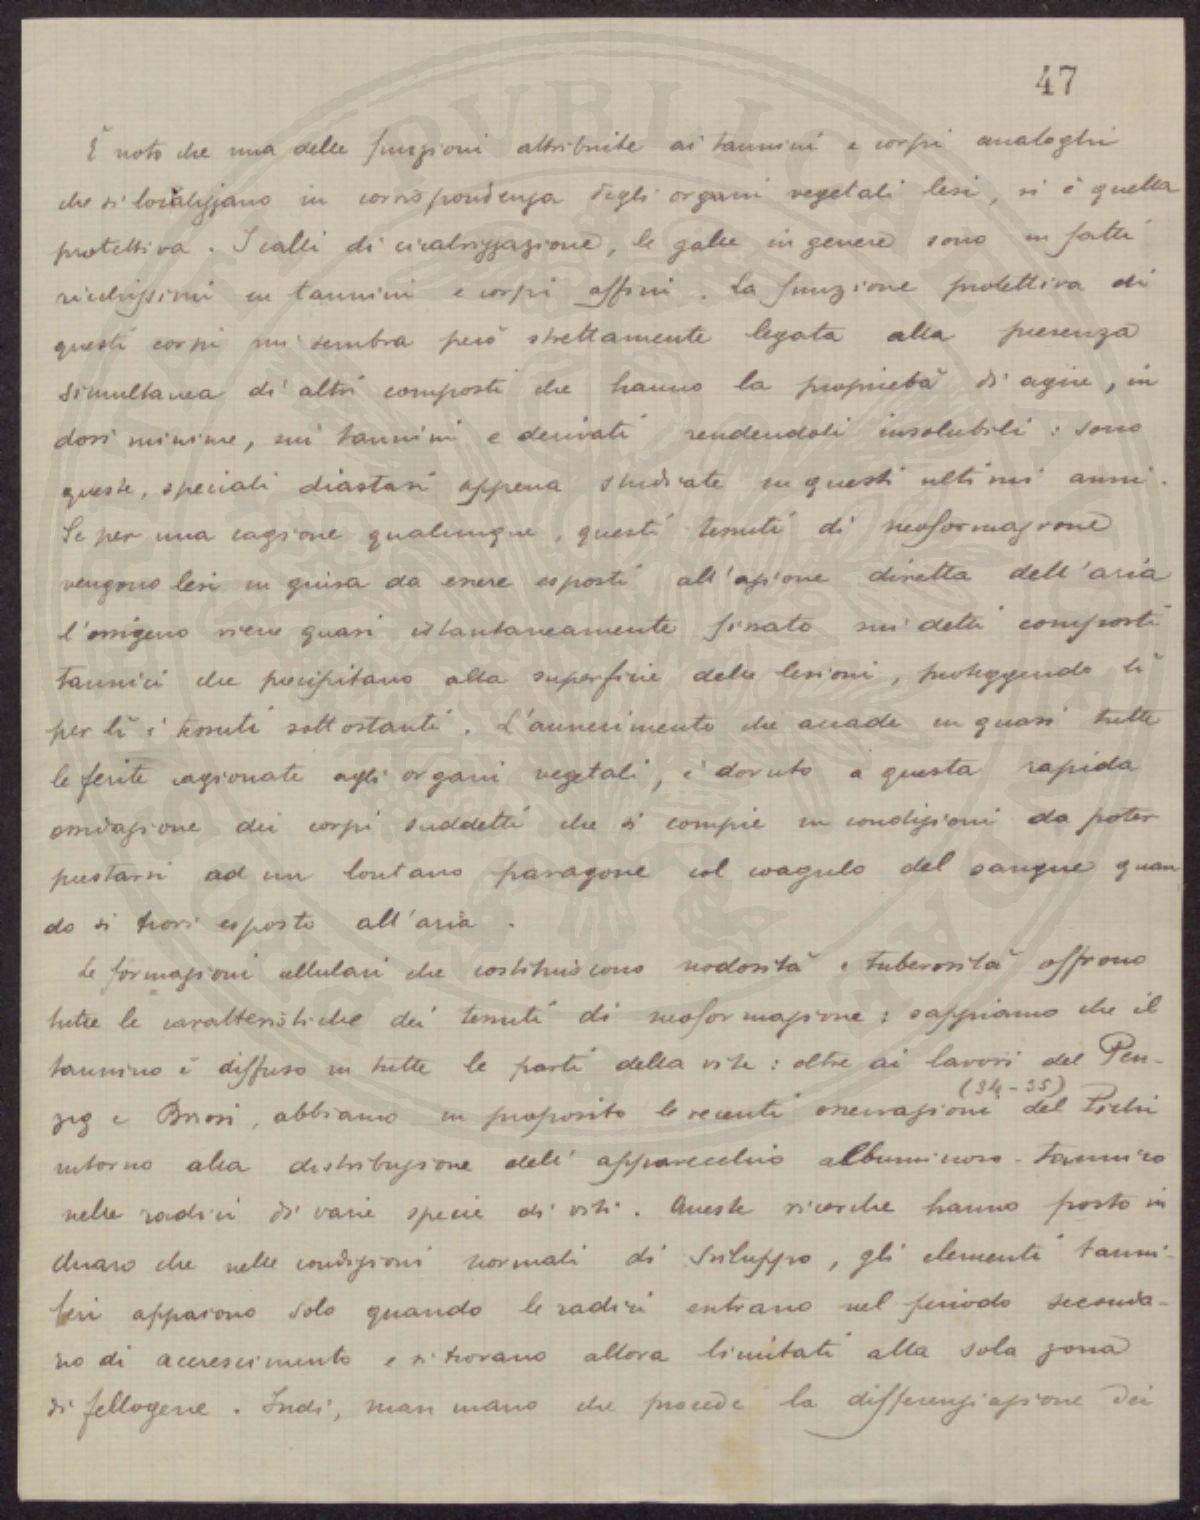 47
È noto che una delle funzioni attribuite ai tannini e corpi analoghi
che si localizzano in corrispondenza degli organi vegetali lesi, si è quella
protettiva. I calli di cicatrizzazione, le galle in genere sono in fatti
ricchissimi in tannini e corpi affini. La funzione protettiva di
questi corpi mi sembra però strettamente legata alla presenza
simultanea di altri composti che hanno la proprietà di agire, in
dosi minime, sui tannini e derivati rendendoli insolubili: sono
queste, speciali diastasi appena studiate in questi ultimi anni.
Se per una cagione qualunque, questi tessuti di neoformazione
vengono lesi in guisa da essere esposti all'azione diretta dell'aria
l'ossigeno viene quasi istantaneamente fissato sui detti composti
tannici che precipitano alla superficie delle lesioni, proteggendo lì
per lì i tessuti sottostanti. L'annerimento che accade in quasi tutte
le ferite cagionate agli organi vegetali, è dovuto a questa rapida
ossidazione dei corpi suddetti che si compie in condizioni da poter
prestarsi ad un lontano paragone col coagulo del sangue quan
do si trovi esposto all'aria.
Le formazioni cellulari che costituiscono nodosità e tuberosità offrono
tutte le caratteristiche dei tessuti di neoformazione: sappiamo che il
tannino è diffuso in tutte le parti della vite: oltre ai lavori del Pen-
zig e Briosi, abbiamo in proposito le recenti osservazioni (34-35) del Petri
intorno alla distribuzione dell'apparecchio albuminoso-tannico
nelle radici di varie specie di viti. Queste ricerche hanno posto in
chiaro che nelle condizioni normali di sviluppo, gli elementi tanni-
feri appaiono solo quando le radici entrano nel periodo seconda-
rio di accrescimento e si trovano allora limitati alla sola zona
di fellogene. Indi, man mano che procede la differenziazione dei